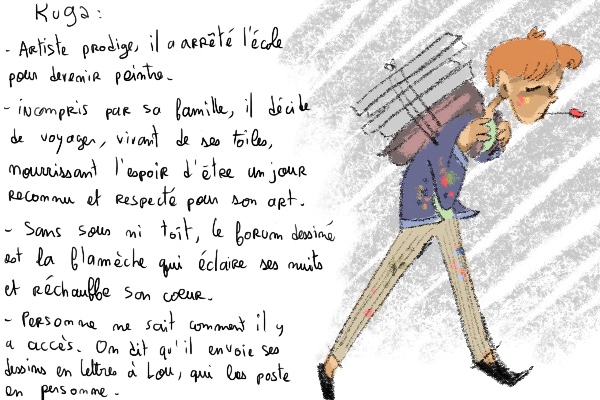 Kuga :
- Artiste prodige, il a arrêté l'école
pour devenir peintre.
- incompris par sa famille, il décide
de voyager, vivant de ses toiles,
nourrissant l'espoir d'être un jour
reconnu et respecté pour son art.
- Sans sous ni toit, le forum dessiné
est la flamèche qui éclaire ses nuits
et réchauffe son coeur.
- Personne ne sait comment il y
a accès. On dit qu'il envoie ses
dessins en lettres à Lou, qui les poste
en personne.